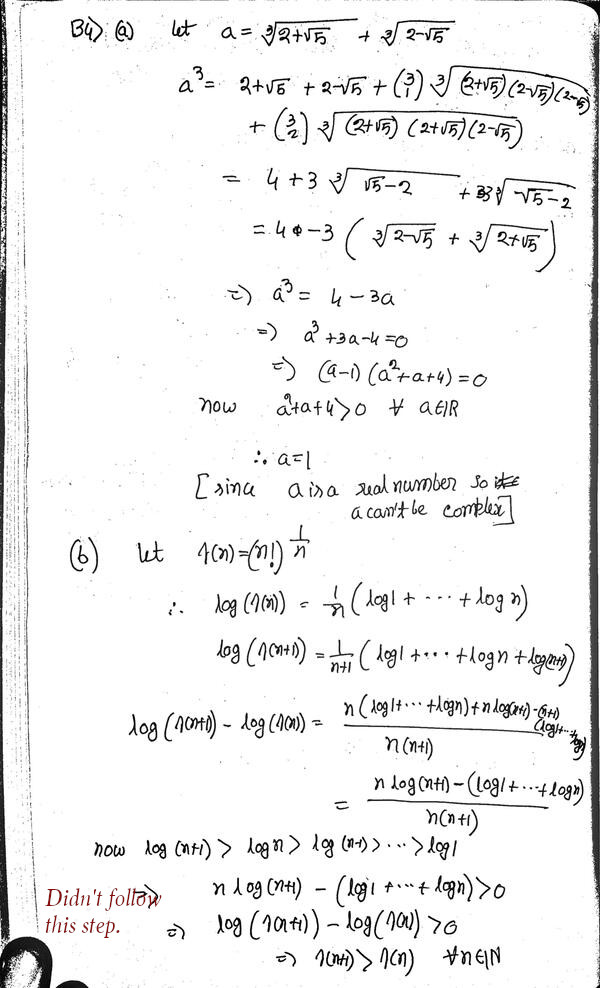 B4) (a) let a = ∛(2+√5) + ∛(2-√5)
a³ = 2+√5 + 2-√5 + (3 1) ∛((2+√5)(2-√5)(2-√5))
+ (3 2) ∛((2+√5)(2+√5)(2-√5))
= 4 + 3 ∛(√5-2) + 3∛(-√5-2)
= 4 - 3 (∛(2-√5) + ∛(2+√5))
=> a³ = 4 - 3a
=> a³+3a-4=0
=> (a-1)(a²+a+4)=0
now a²+a+4>0 ∀ a∈ℝ
∴ a=1
[since a is a real number so
a can't be complex]
(b) let f(n)=(n!)^(1/n)
∴ log(f(n)) = 1/n (log1 + ··· + log n)
log(f(n+1)) = 1/(n+1) (log1 + ··· + log n + log(n+1))
log(f(n+1)) - log(f(n)) = (n(log1+···+logn)+n log(n+1)-(n+1)(log1+···+logn))/(n(n+1))
= (n log(n+1) - (log1+···+logn))/(n(n+1))
now log(n+1) > log n > log(n-1) > ··· > log1
Didn't follow => n log(n+1) - (log1+···+logn)>0
this step. => log(f(n+1)) - log(f(n)) >0
=> f(n+1) > f(n) ∀n∈ℕ